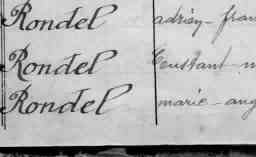 Rondel adrien - fran
Rondel Constant - m
Rondel marie - ang